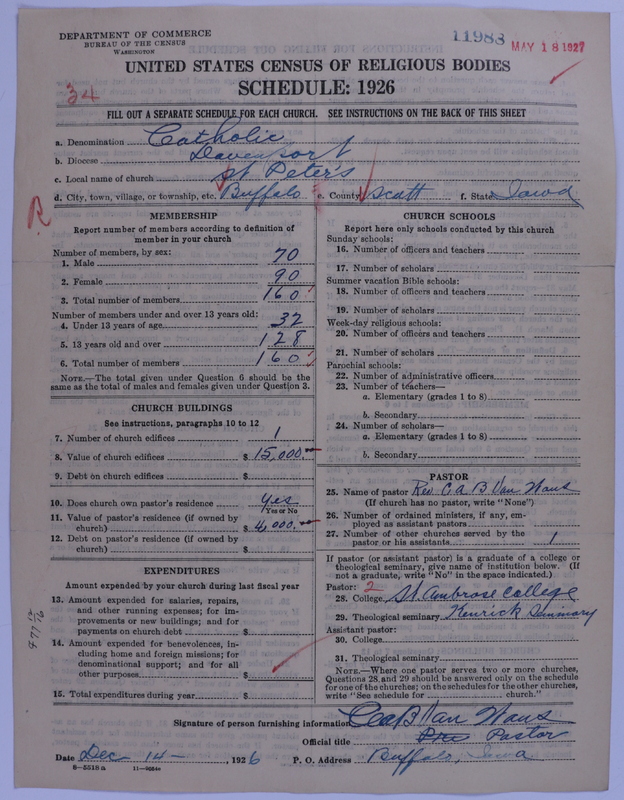 DEPARTMENT OF COMMERCE
BUREAU OF THE CENSUS
WASHINGTON
11983
MAY 18 1927
UNITED STATES CENSUS OF RELIGIOUS BODIES
SCHEDULE: 1926
34
FILL OUT A SEPARATE SCHEDULE FOR EACH CHURCH. SEE INSTRUCTIONS ON THE BACK OF THIS SHEET
a. Denomination Catholic
b. Diocese Davenport
c. Local name of church St Peter's
d. City, town, village, or township, etc. Buffalo e. County Scott f. State Iowa
R
MEMBERSHIP
Report number of members according to definition of
member in your church
Number of members, by sex:
1. Male 70
2. Female 90
3. Total number of members 160
Number of members under and over 13 years old:
4. Under 13 years of age 32
5. 13 years old and over 128
6. Total number of members 160
NOTE.—The total given under Question 6 should be the
same as the total of males and females given under Question 3.
CHURCH BUILDINGS
See instructions, paragraphs 10 to 12
7. Number of church edifices 1
8. Value of church edifices $ 15,000.
9. Debt on church edifices $
10. Does church own pastor's residence yes
(Yes or No
11. Value of pastor's residence (if owned by
church) $ 4,000.
12. Debt on pastor's residence (if owned by
church) $
EXPENDITURES
Amount expended by your church during last fiscal year
13. Amount expended for salaries, repairs,
and other running expenses; for im-
provements or new buildings; and for
payments on church debt $
14. Amount expended for benevolences, in-
cluding home and foreign missions; for
denominational support; and for all
other purposes $
15. Total expenditures during year $
CHURCH SCHOOLS
Report here only schools conducted by this church
Sunday schools:
16. Number of officers and teachers
17. Number of scholars
Summer vacation Bible schools:
18. Number of officers and teachers
19. Number of scholars
Week-day religious schools:
20. Number of officers and teachers
21. Number of scholars
Parochial schools:
22. Number of administrative officers
23. Number of teachers—
a. Elementary (grades 1 to 8)
b. Secondary
24. Number of scholars—
a. Elementary (grades 1 to 8)
b. Secondary
PASTOR
25. Name of pastor Rev. C A B Van
(If church has no pastor, write "None")
26. Number of ordained ministers, if any, em-
ployed as assistant pastors
27. Number of other churches served by the
pastor or his assistants 1
If pastor (or assistant pastor) is a graduate of a college or
theological seminary, give name of institution below. (If
not a graduate, write "No" in the space indicated.)
Pastor: 2
28. College St. Ambrose College
29. Theological seminary Kenrick Seminary
Assistant pastor:
30. College
31. Theological seminary
NOTE.—Where one pastor serves two or more churches,
Questions 28, and 29 should be answered only on the schedule
for one of the churches; on the schedules for the other churches,
write "See schedule for church."
Signature of person furnishing information Van
Official title Pastor
Date Dec 14 —, 1926 P. O. Address Buffalo, Iowa